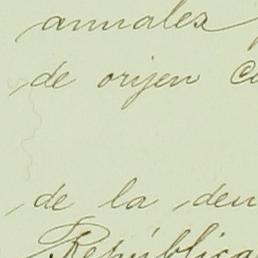 annales
de orijen
de la
República